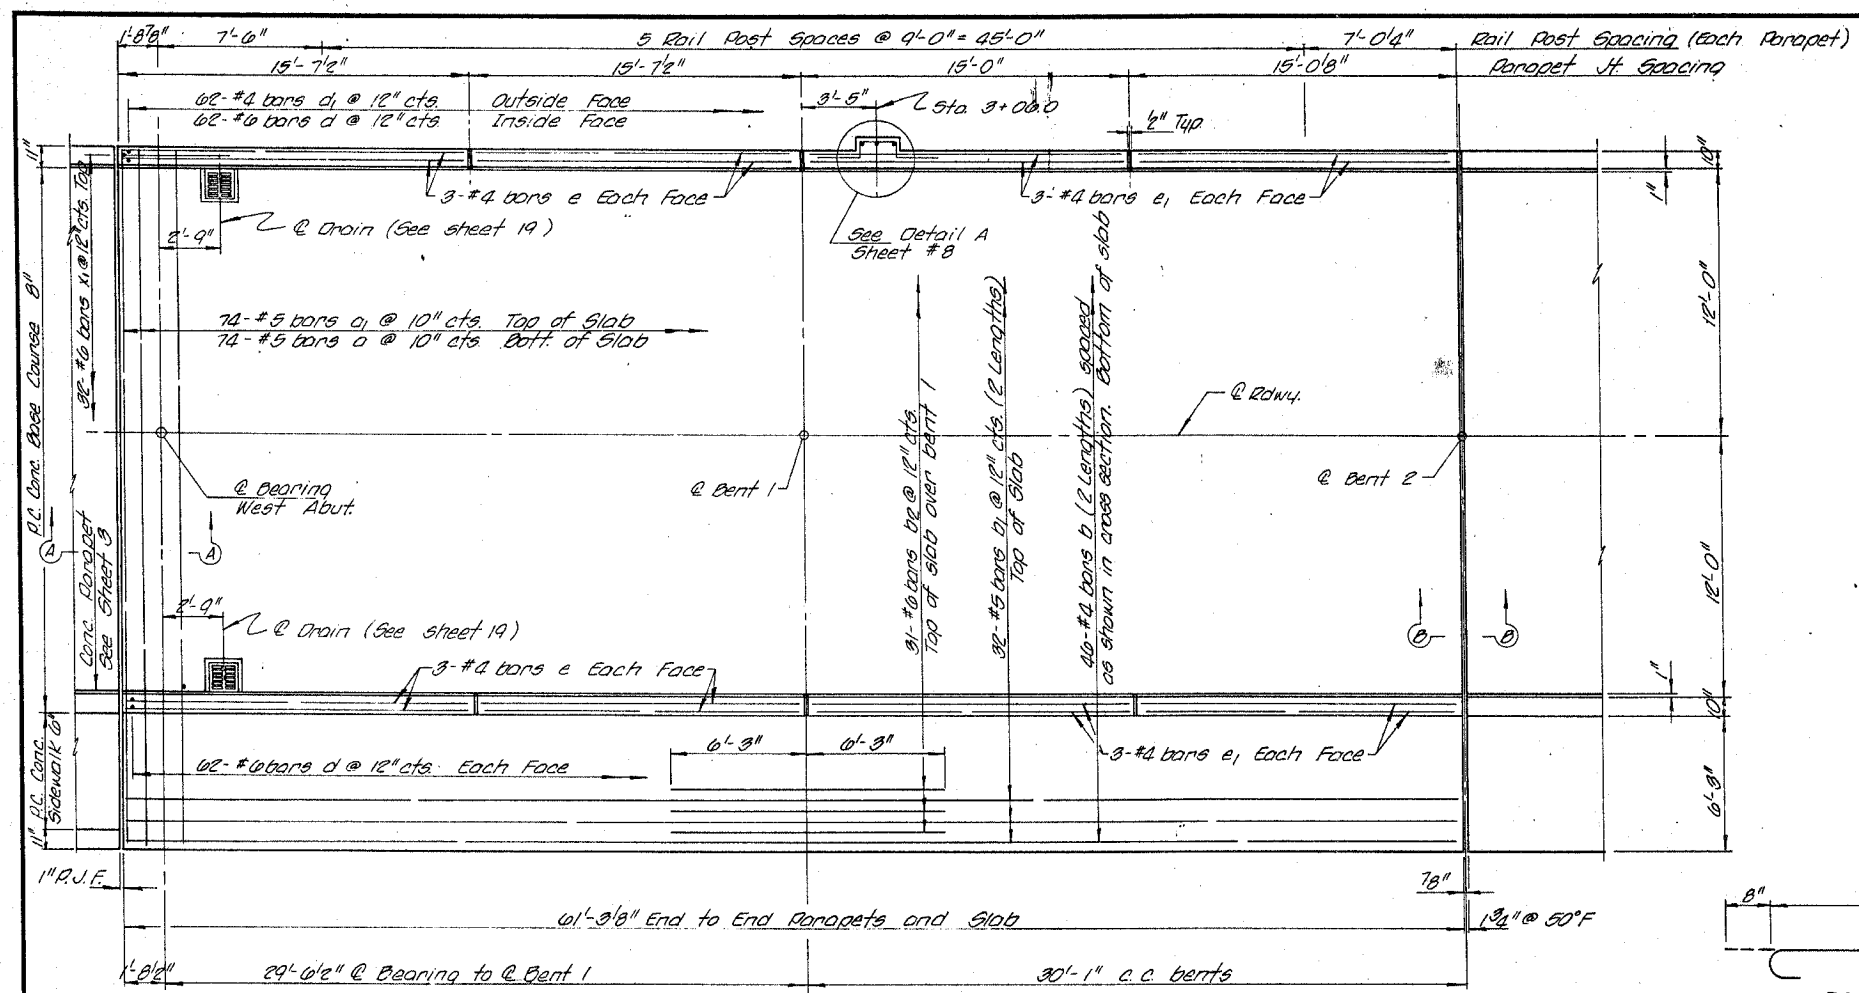 1'-8⅞" 7'-6" 5 Rail Post Spaces @ 9'-0" = 45'-0" 7'-0¼" Rail Post Spacing (Each Parapet)
15'-7½" 15'-7½" 15'-0" 15'-0⅛" Parapet Jt. Spacing
62-#4 bars d₁ @ 12" cts. Outside Face
62-#6 bars d @ 12" cts. Inside Face
3'-5" Sta. 3+06.0
½" Typ.
11"
10"
1"
3-#4 bars e Each Face
3-#4 bars e₁ Each Face
℄ Drain (See sheet 19)
2'-9"
See Detail A
Sheet #8
32-#6 bars x₁ @ 12" cts. Top
P.C. Conc. Base Course 8"
74-#5 bars a₁ @ 10" cts. Top of Slab
74-#5 bars a @ 10" cts. Bott. of Slab
12'-0"
℄ Rdwy.
℄ Bearing
West Abut.
℄ Bent 1
℄ Bent 2
31-#6 bars b2 @ 12" cts.
Top of slab over bent 1
32-#5 bars b₁ @ 12" cts. (2 Lengths)
Top of Slab
46-#4 bars b (2 Lengths) spaced
as shown in cross section. Bottom of slab
A A
Conc. Parapet
See Sheet 3
12'-0"
B B
2'-9"
℄ Drain (See sheet 19)
3-#4 bars e Each Face
1"
10"
3-#4 bars e₁ Each Face
6'-3" 6'-3"
62-#6 bars d @ 12" cts. Each Face
P.C. Conc.
Sidewalk 6"
11"
6'-3"
1" P.J.F.
⅞"
61'-3⅛" End to End Parapets and Slab
1¾" @ 50°F
8"
1'-8½" 29'-6½" ℄ Bearing to ℄ Bent 1 30'-1" c.c. bents